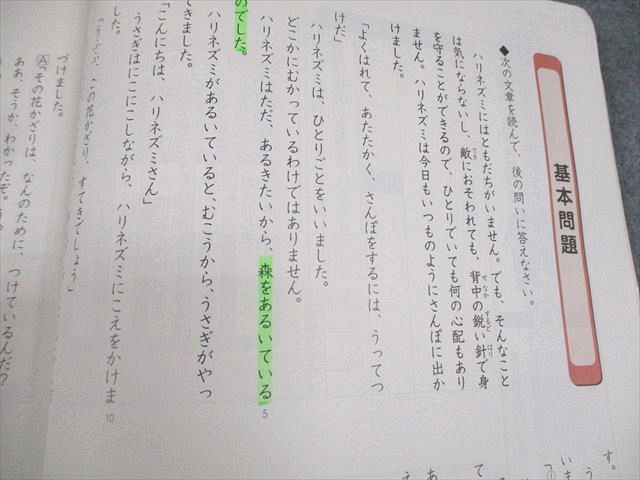 基本問題
◆次の文章を読んで、後の問いに答えなさい。
ハリネズミにはともだちがいません。でも、そんなこと
は気にならないし、敵におそわれても、背中の鋭い針で身
を守ることができるので、ひとりでいても何の心配もあり
ません。ハリネズミは今日もいつものようにさんぽに出か
けました。
「よくはれて、あたたかく、さんぽをするには、うってつ
けだ」
ハリネズミは、ひとりごとをいいました。
どこかにむかっているわけではありません。
ハリネズミはただ、あるきたいから、森をあるいている 5
のでした。
ハリネズミがあるいていると、むこうから、うさぎがやっ
てきました。
「こんにちは、ハリネズミさん」
うさぎはにこにこしながら、ハリネズミにこえをかけま 10
した。
「うふふ、この花かざり、すてきでしょう」
づけました。
A「その花かざりは、なんのために、つけているんだ?
ああ、そうか、わかったぞ。